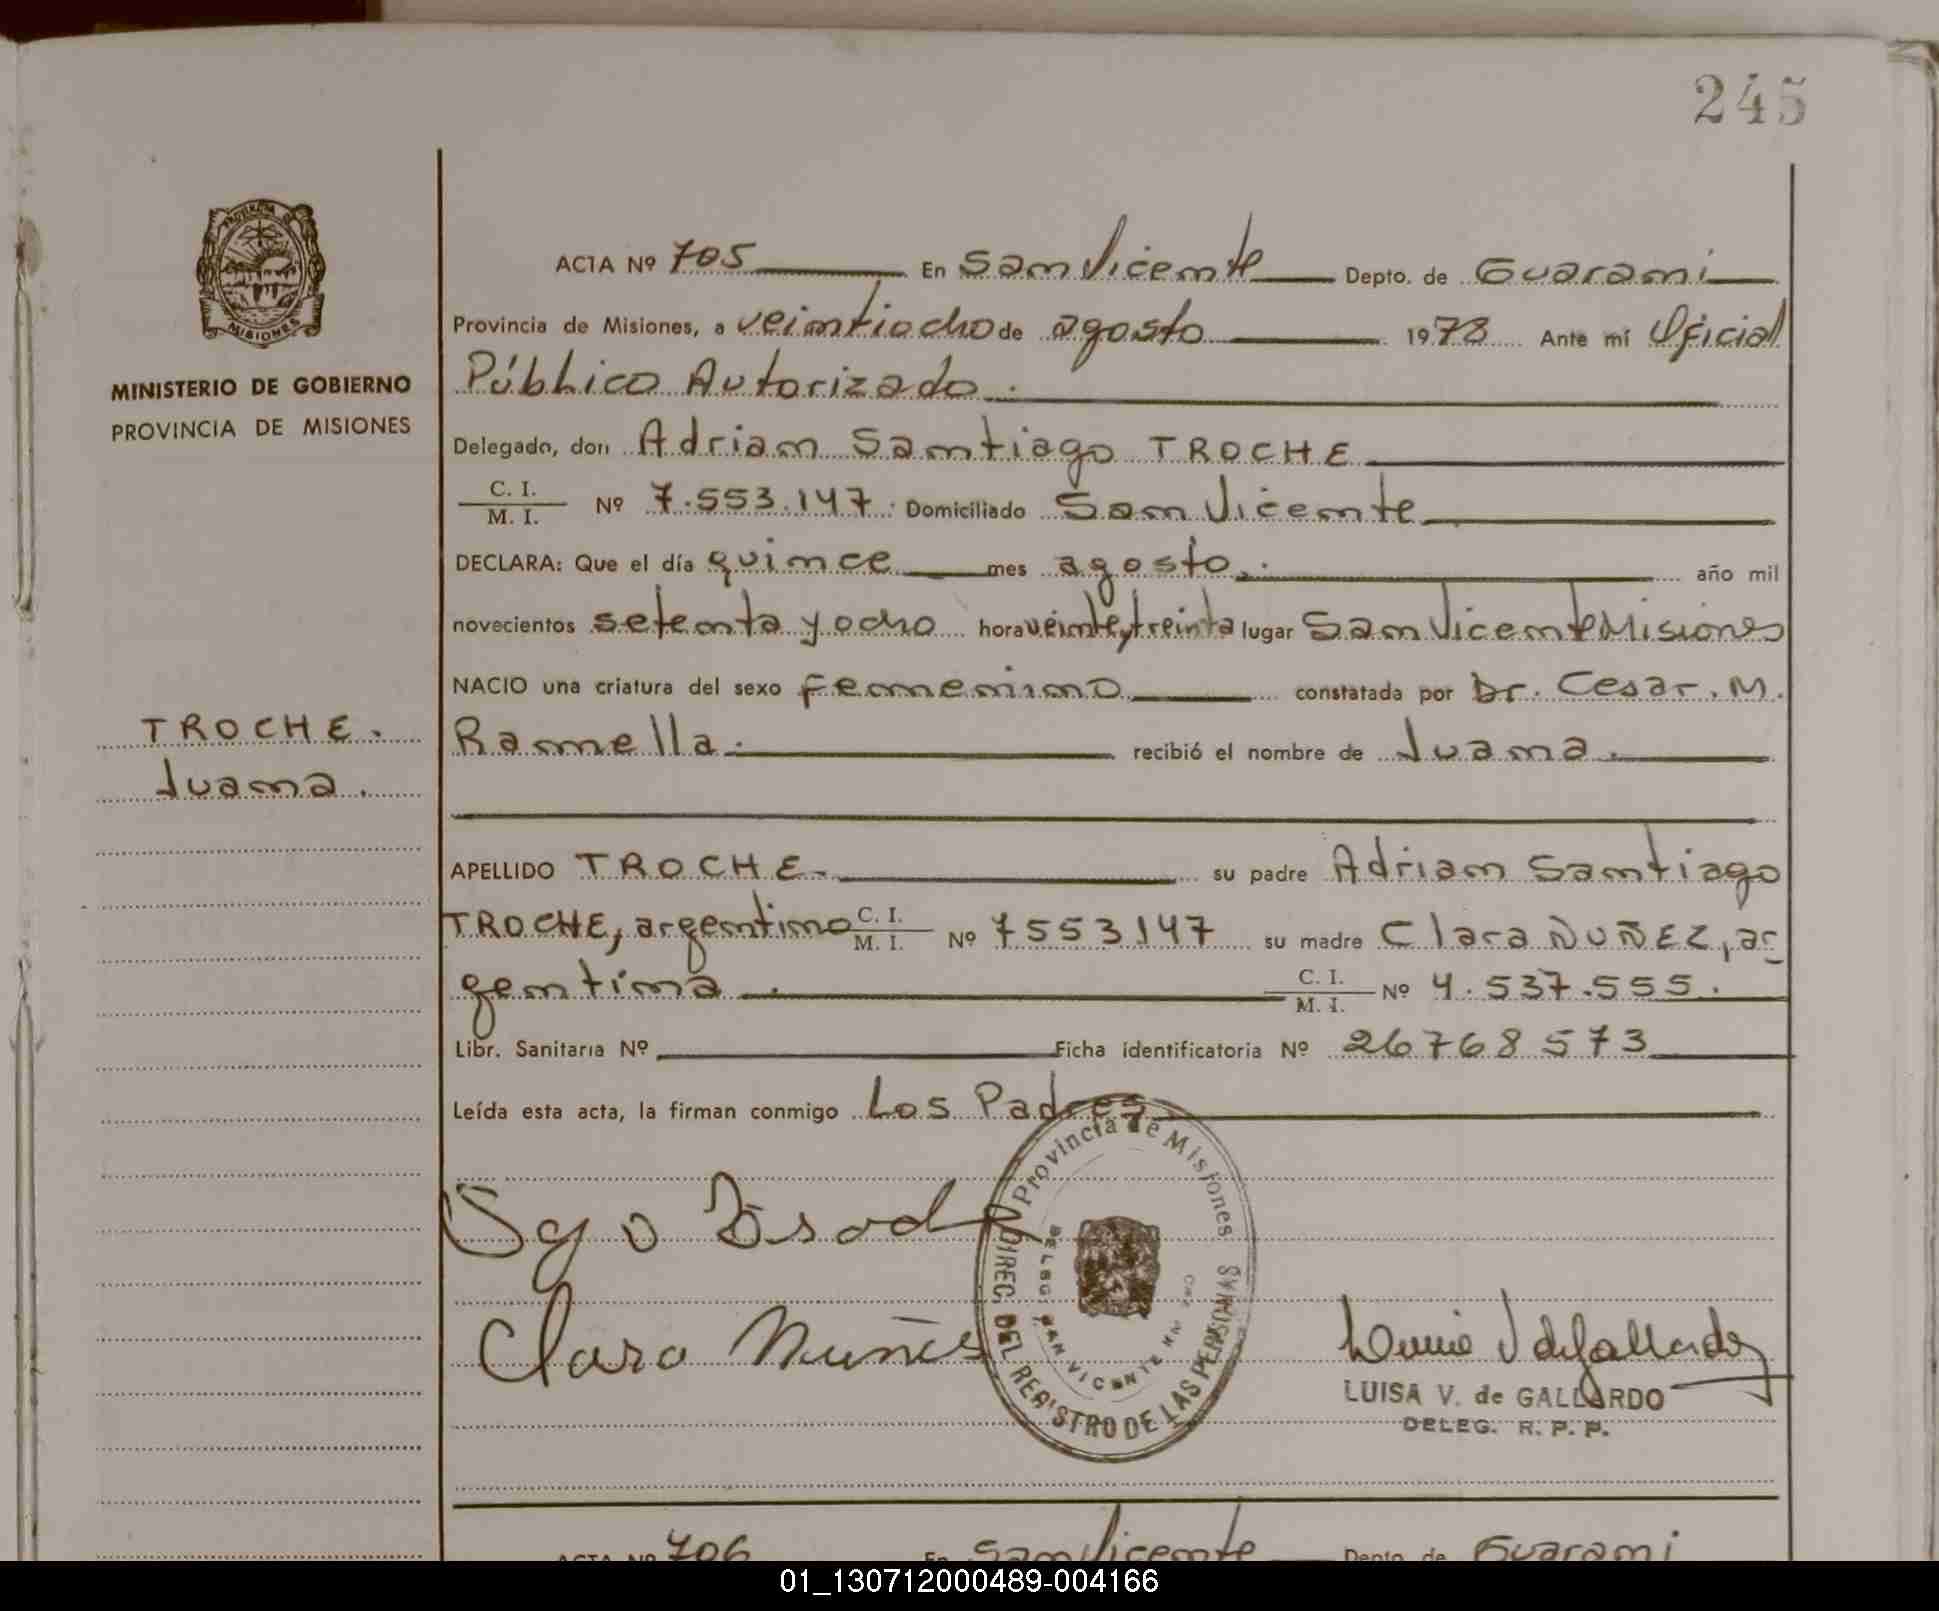 245
ACTA Nº 705 En San Vicente Depto. de Guarani
Provincia de Misiones, a veintiocho de agosto 1978 Ante mí Oficial
Público Autorizado.
Delegado, don Adrian Santiago TROCHE
C. I.
M. I. Nº 7.553.147. Domiciliado San Vicente
DECLARA: Que el día quince mes agosto. año mil
novecientos setenta y ocho hora veinte, treinta lugar San Vicente Misiones
NACIO una criatura del sexo femenino constatada por Dr. Cesar. M.
Ramella. recibió el nombre de Juana.
APELLIDO TROCHE. su padre Adrian Santiago
TROCHE, argentino C. I.
M. I. Nº 7553.147 su madre Clara ÑUÑEZ, ar
gentina. C. I.
M. I. Nº 4.537.555.
Libr. Sanitaria Nº Ficha identificatoria Nº 26768573
Leída esta acta, la firman conmigo Los Padres
Clara Nuñes
LUISA V. de GALLARDO
DELEG. R. P. P.
Provincia de Misiones
DIREC. DEL REGISTRO DE LAS PERSONAS
DELEG. SAN VICENTE
MISIONES
MINISTERIO DE GOBIERNO
PROVINCIA DE MISIONES
TROCHE.
Juana.
ACTA Nº 706 En San Vicente Depto. de Guarani
01_130712000489-004166